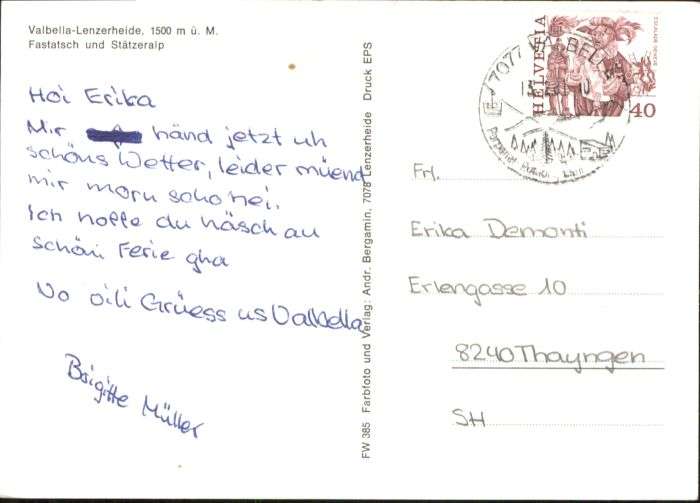 Valbella-Lenzerheide, 1500 m ü. M.
Fastatsch und Stätzeralp
Hoi Erika
Mir händ jetzt uh
schöns Wetter, leider müend
mir morn scho hei.
Ich hoffe du häsch au
schöni Ferie gha
Vo Grüess us Valbella
Brigitte Müller
FW 385 Farbfoto und Verlag: Andr. Bergamin, 7078 Lenzerheide Druck EPS
7077 VALBELLA
HELVETIA
40
Frl.
Erika Demonti
Erlengasse 10
8240 Thayngen
SH